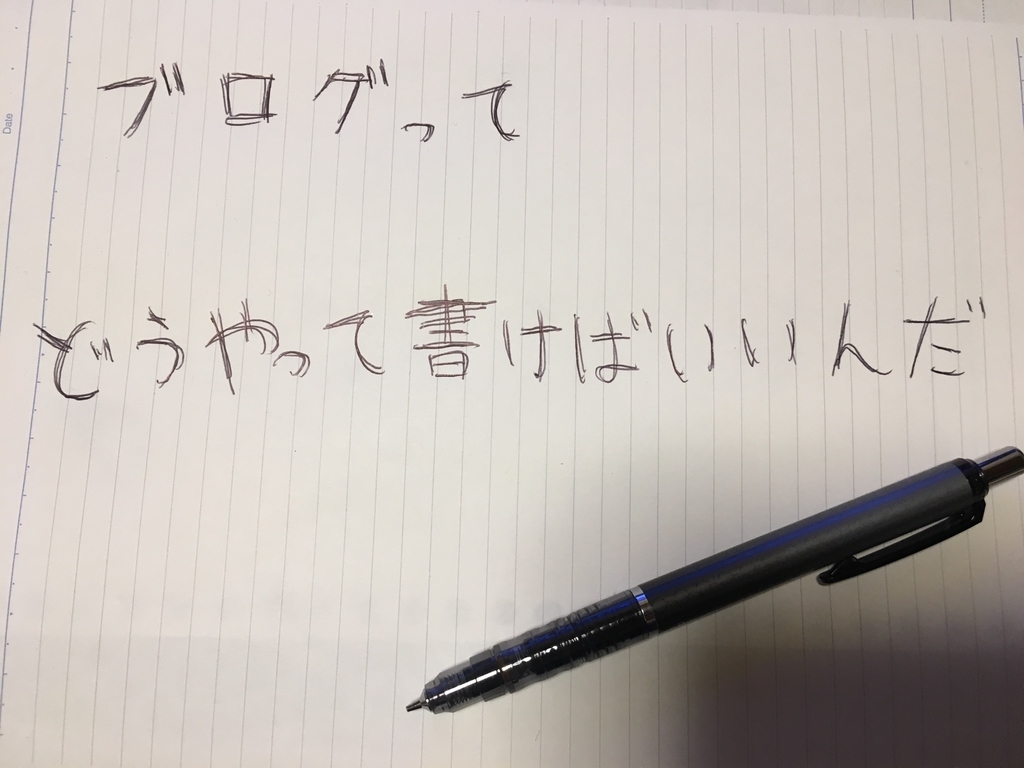 ブログって
どうやって書けばいいんだ
Date